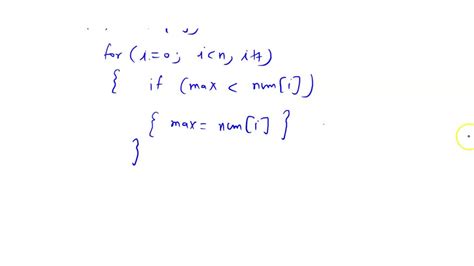 for (i=0; i<n, i++)
{ if (max < num[i])
{ max = num[i] }
}